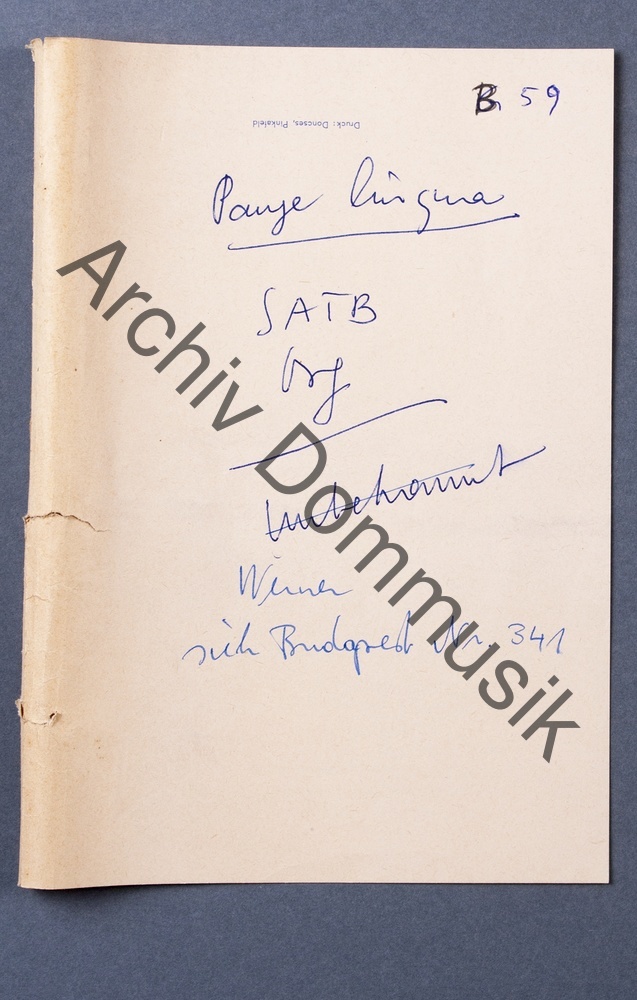 B 59
Druck: Doncses, Pinkafeld
Pange lingua
SATB
Org
Unbekannt
Werner
sieh Budapest Nr. 341
Archiv Dommusik